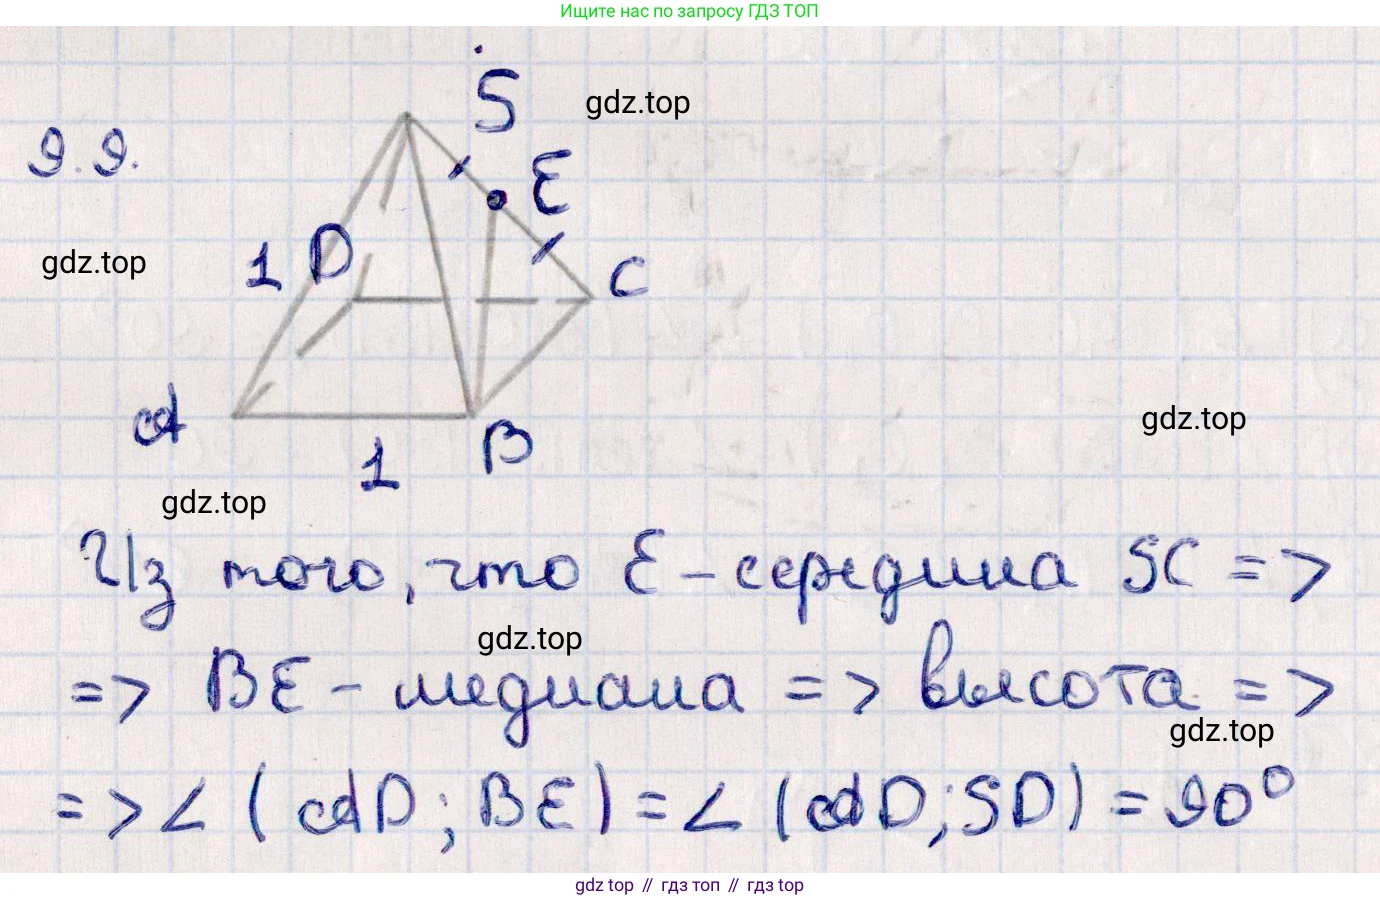 Ищите нас по запросу ГДЗ ТОП
S
gdz.top
9.9.
E
gdz.top
1 D
C
A
gdz.top
B
1
gdz.top
Из того, что E - середина SC =>
gdz.top
=> BE - медиана => высота =>
gdz.top
=> ∠ (AD; BE) = ∠ (AD; SD) = 90°
gdz top // гдз топ // gdz top